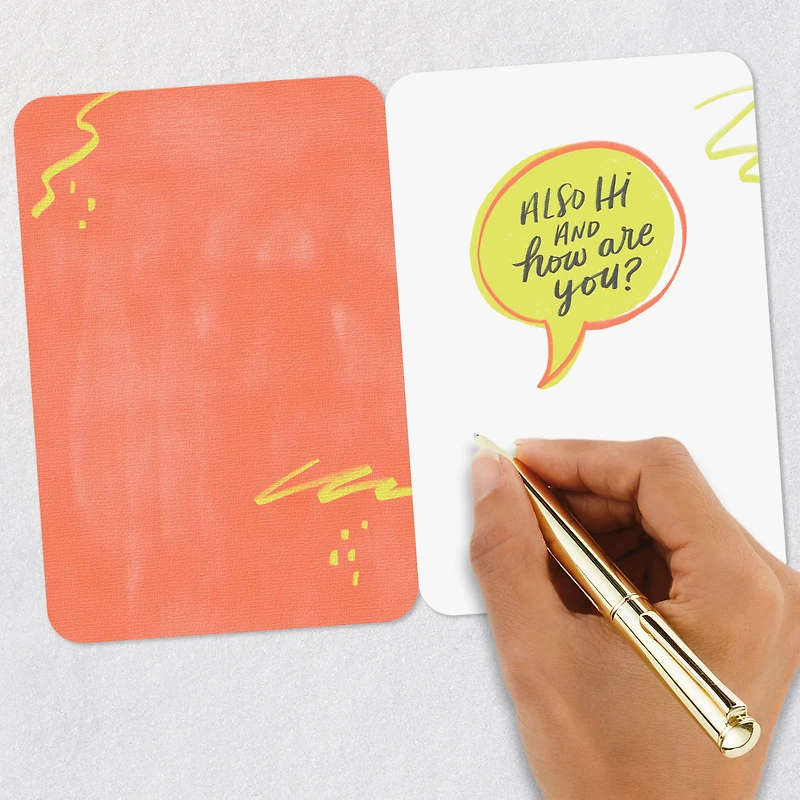 ALSO Hi
AND
how are
you?